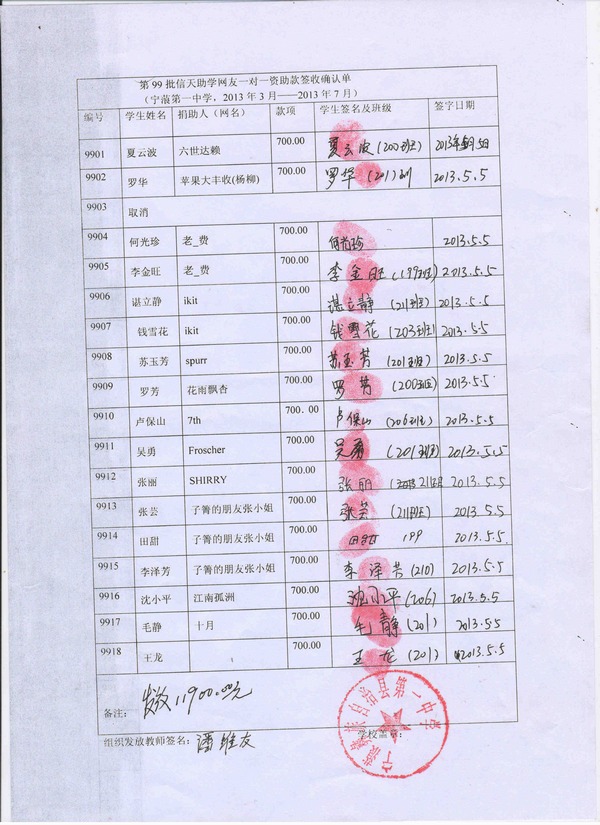 第 99 批信天助学网友一对一资助款签收确认单
（宁蒗第一中学，2013 年 3 月——2013 年 7 月）
编号 学生姓名 捐助人（网名） 款项 学生签名及班级 签字日期
9901 夏云波 六世达赖 700.00 夏云波(200班) 2013年5月5日
9902 罗华 苹果大丰收(杨柳) 700.00 罗华(201) 2013.5.5
9903 取消
9904 何光珍 老_费 700.00 何光珍 2013.5.5
9905 李金旺 老_费 700.00 李金旺(199班) 2013.5.5
9906 谌立静 ikit 700.00 谌立静(211班) 2013.5.5
9907 钱雪花 ikit 700.00 钱雪花(203班) 2013.5.5
9908 苏玉芳 spurr 700.00 苏玉芳(201班) 2013.5.5
9909 罗芳 花雨飘杏 700.00 罗芳(200班) 2013.5.5
9910 卢保山 7th 700.00 卢保山(206班) 2013.5.5
9911 吴勇 Froscher 700.00 吴勇(201班) 2013.5.5
9912 张丽 SHIRRY 700.00 张丽(211班 2013.5.5
9913 张芸 子箐的朋友张小姐 700.00 张芸(211班) 2013.5.5
9914 田甜 子箐的朋友张小姐 700.00 田甜 199 2013.5.5
9915 李泽芳 子箐的朋友张小姐 700.00 李泽芳(210) 2013.5.5
9916 沈小平 江南孤洲 700.00 沈小平(206) 2013.5.5
9917 毛静 十月 700.00 毛静(201) 2013.5.5
9918 王龙 700.00 王龙(201) 2013.5.5
备注： 发放11900.00元
组织发放教师签名：潘维友 学校盖章：
宁蒗彝族自治县第一中学